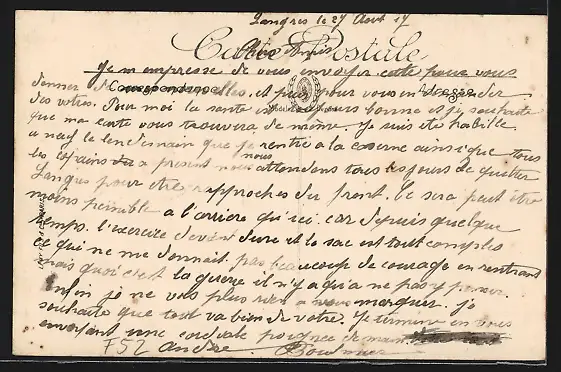 Langres le 27 Aout 17
Carte Postale
Chers Amis
Je m empresse de vous envoyer cette pour vous
Correspondance
Adresse
donner de mes nouvelles et puis pour vous en demander
des votres. Pour moi la santé est toujours bonne et je souhaite
que ma carte vous trouvera de même. Je suis été habille
a neuf le lendemain que je rentré a la caserne ainsi que tous
les copains a present nous attendons tous les jours de quitter
Langres pour etre rapproches du front. Ce sera peut être
moins penible a l'arriere qu'ici car depuis quelque
temps. l'exercice devient dure et le sac est tout complés
ce qui ne me donnait pas beaucoup de courage en rentrant
mais quoi c'est la guerre il n'y a qu'a ne pas y penser.
Enfin je ne vois plus rien a vous marquer. je
souhaite que tout va bien de votre. Je termine en vous
envoyant une cordiale poignee de main
F52 André